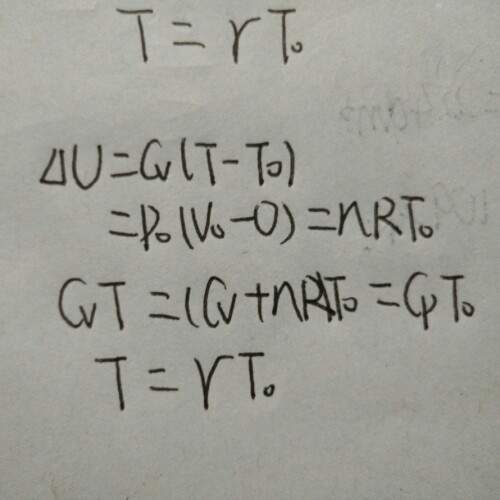 T = γT₀
ΔU = Cv(T-T₀)
= P₀(V₀-0) = nRT₀
CvT = (Cv+nR)T₀ = CpT₀
T = γT₀